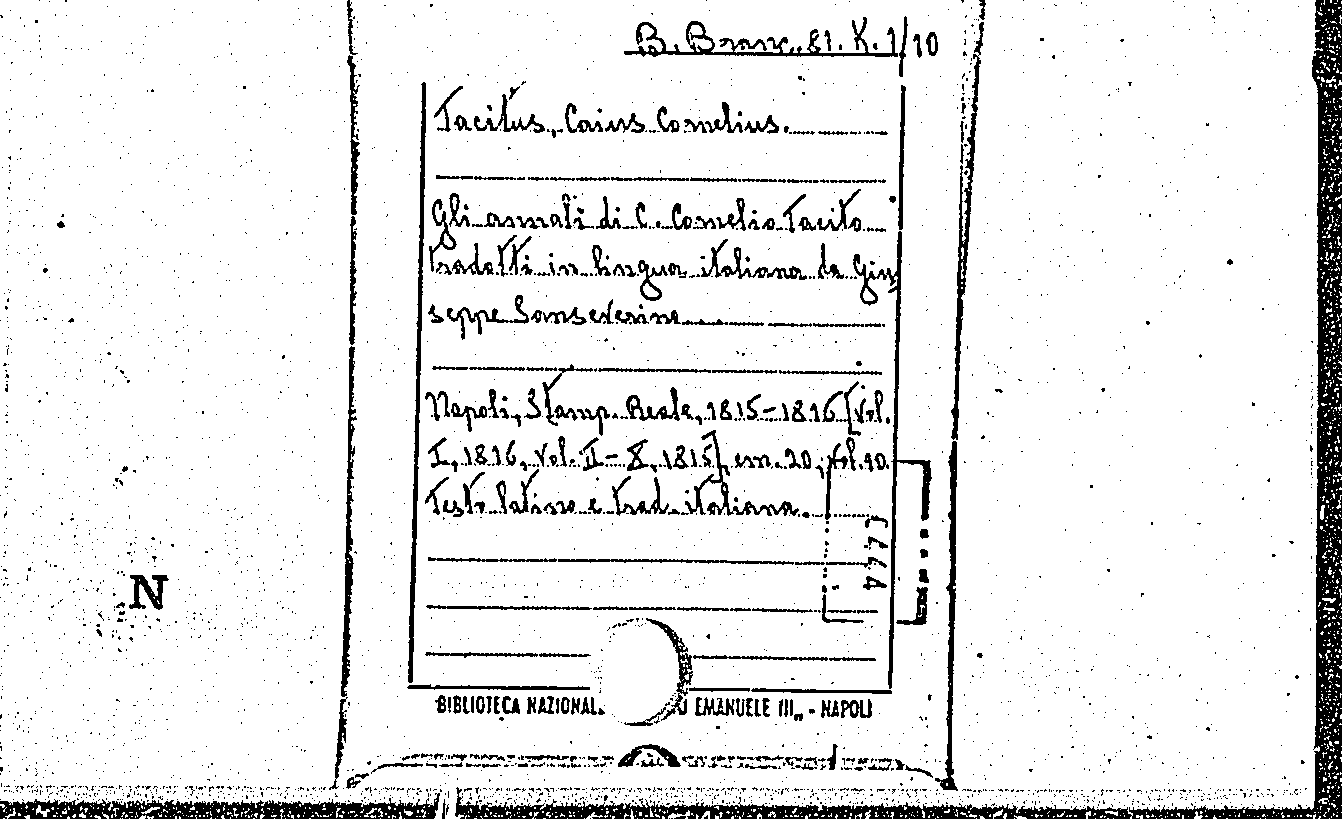 B. Branc. 81. K. 1/10
Tacitus, Caius Cornelius.
Gli annali di C. Cornelio Tacito
tradotti in lingua italiana da Giu
seppe Sanseverino
Napoli, Stamp. Reale, 1815-1816 [vol.
I, 1816, vol. II-X, 1815], cm. 20, vol. 10.
Testo latino e trad. italiana.
N
BIBLIOTECA NAZIONAL EMANUELE III„ - NAPOLI